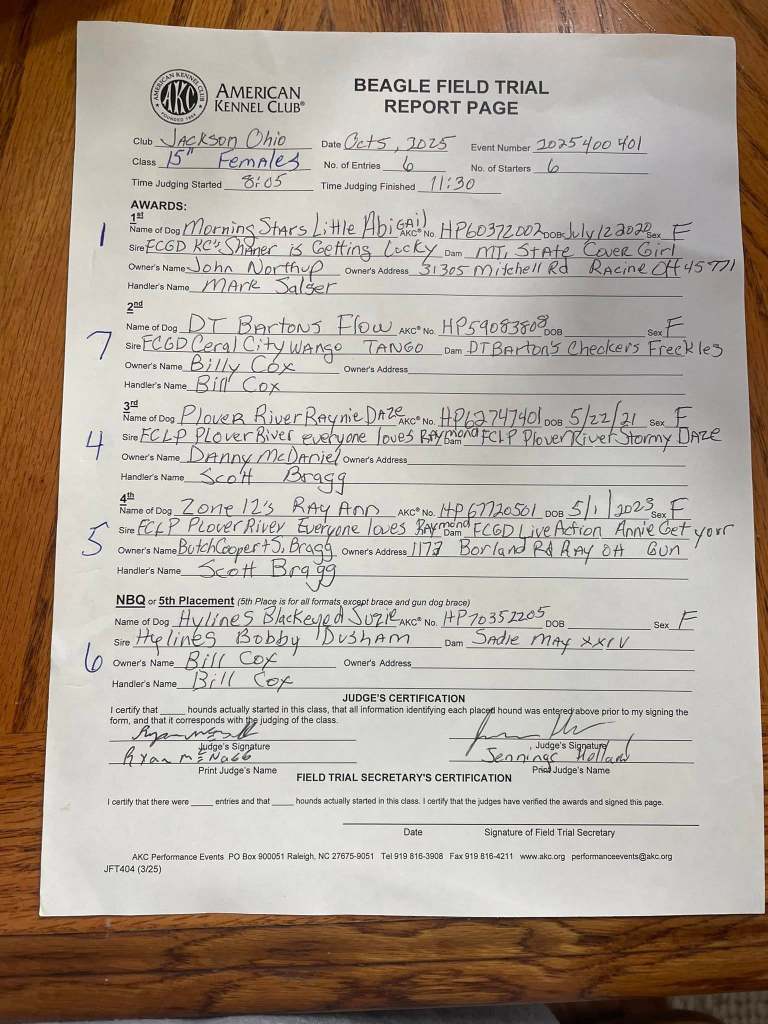 AMERICAN KENNEL CLUB
AKC
FOUNDED 1884
AMERICAN
KENNEL CLUB®
BEAGLE FIELD TRIAL
REPORT PAGE
Club Jackson Ohio Date Oct 5, 2025 Event Number 2025400401
Class 15" Females No. of Entries 6 No. of Starters 6
Time Judging Started 8:05 Time Judging Finished 11:30
AWARDS:
1st
1 Name of Dog Morning Stars Little Abigail AKC® No. HP60372002 DOB July 12 2020 Sex F
Sire FCGD KC's Shiner is Getting Lucky Dam MT. State Cover Girl
Owner's Name John Northup Owner's Address 31305 Mitchell Rd Racine OH 45771
Handler's Name Mark Salser
2nd
7 Name of Dog DT Bartons Flow AKC® No. HP59083808 DOB Sex F
Sire FCGD Ceral City Wango Tango Dam DT Barton's Checkers Freckles
Owner's Name Billy Cox Owner's Address
Handler's Name Bill Cox
3rd
4 Name of Dog Plover River Raynie Daze AKC® No. HP62747401 DOB 5/22/21 Sex F
Sire FCLP Plover River everyone loves Raymond Dam FCLP Plover River Stormy Daze
Owner's Name Danny McDaniel Owner's Address
Handler's Name Scott Bragg
4th
5 Name of Dog Zone 12's Ray Ann AKC® No. HP67720501 DOB 5/1/2023 Sex F
Sire FCLP Plover River Everyone loves Raymond Dam FCGD Live Action Annie Get your Gun
Owner's Name Butch Cooper + S. Bragg Owner's Address 1173 Borland Rd Ray OH
Handler's Name Scott Bragg
NBQ or 5th Placement (5th Place is for all formats except brace and gun dog brace)
6 Name of Dog Hylines Blackeyed Suzie AKC® No. HP70352205 DOB Sex F
Sire Hylines Bobby Dusham Dam Sadie May XXIV
Owner's Name Bill Cox Owner's Address
Handler's Name Bill Cox
JUDGE'S CERTIFICATION
I certify that _____ hounds actually started in this class, that all information identifying each placed hound was entered above prior to my signing the
form, and that it corresponds with the judging of the class.
Judge's Signature Judge's Signature
Ryan McNabb Jennings Holland
Print Judge's Name Print Judge's Name
FIELD TRIAL SECRETARY'S CERTIFICATION
I certify that there were _____ entries and that _____ hounds actually started in this class. I certify that the judges have verified the awards and signed this page.
Date Signature of Field Trial Secretary
AKC Performance Events PO Box 900051 Raleigh, NC 27675-9051 Tel 919 816-3908 Fax 919 816-4211 www.akc.org performanceevents@akc.org
JFT404 (3/25)